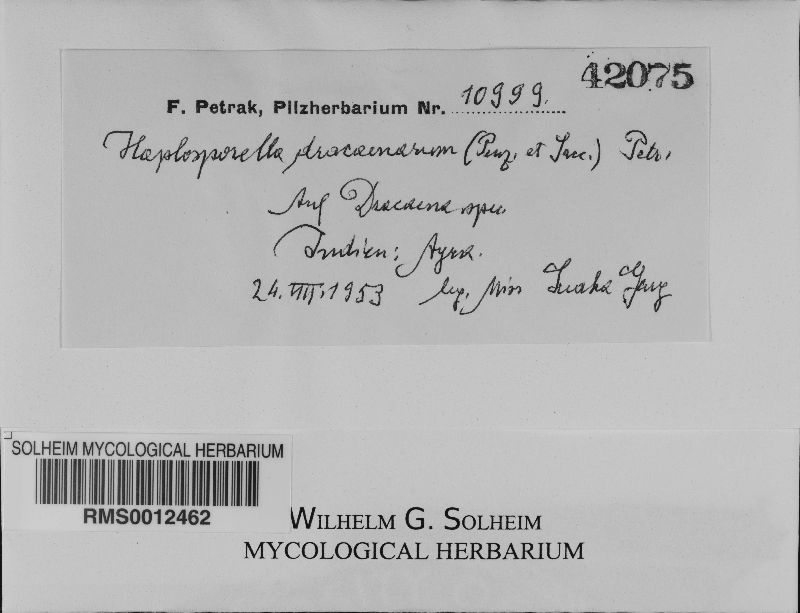 42075
F. Petrak, Pilzherbarium Nr. 10999.
Haplosporella dracaenarum (Penz. et Sacc.) Petr.
Auf Dracaena spec.
Indien: Agra.
24. VIII. 1953 leg. Miss Garg
SOLHEIM MYCOLOGICAL HERBARIUM
RMS0012462
WILHELM G. SOLHEIM
MYCOLOGICAL HERBARIUM